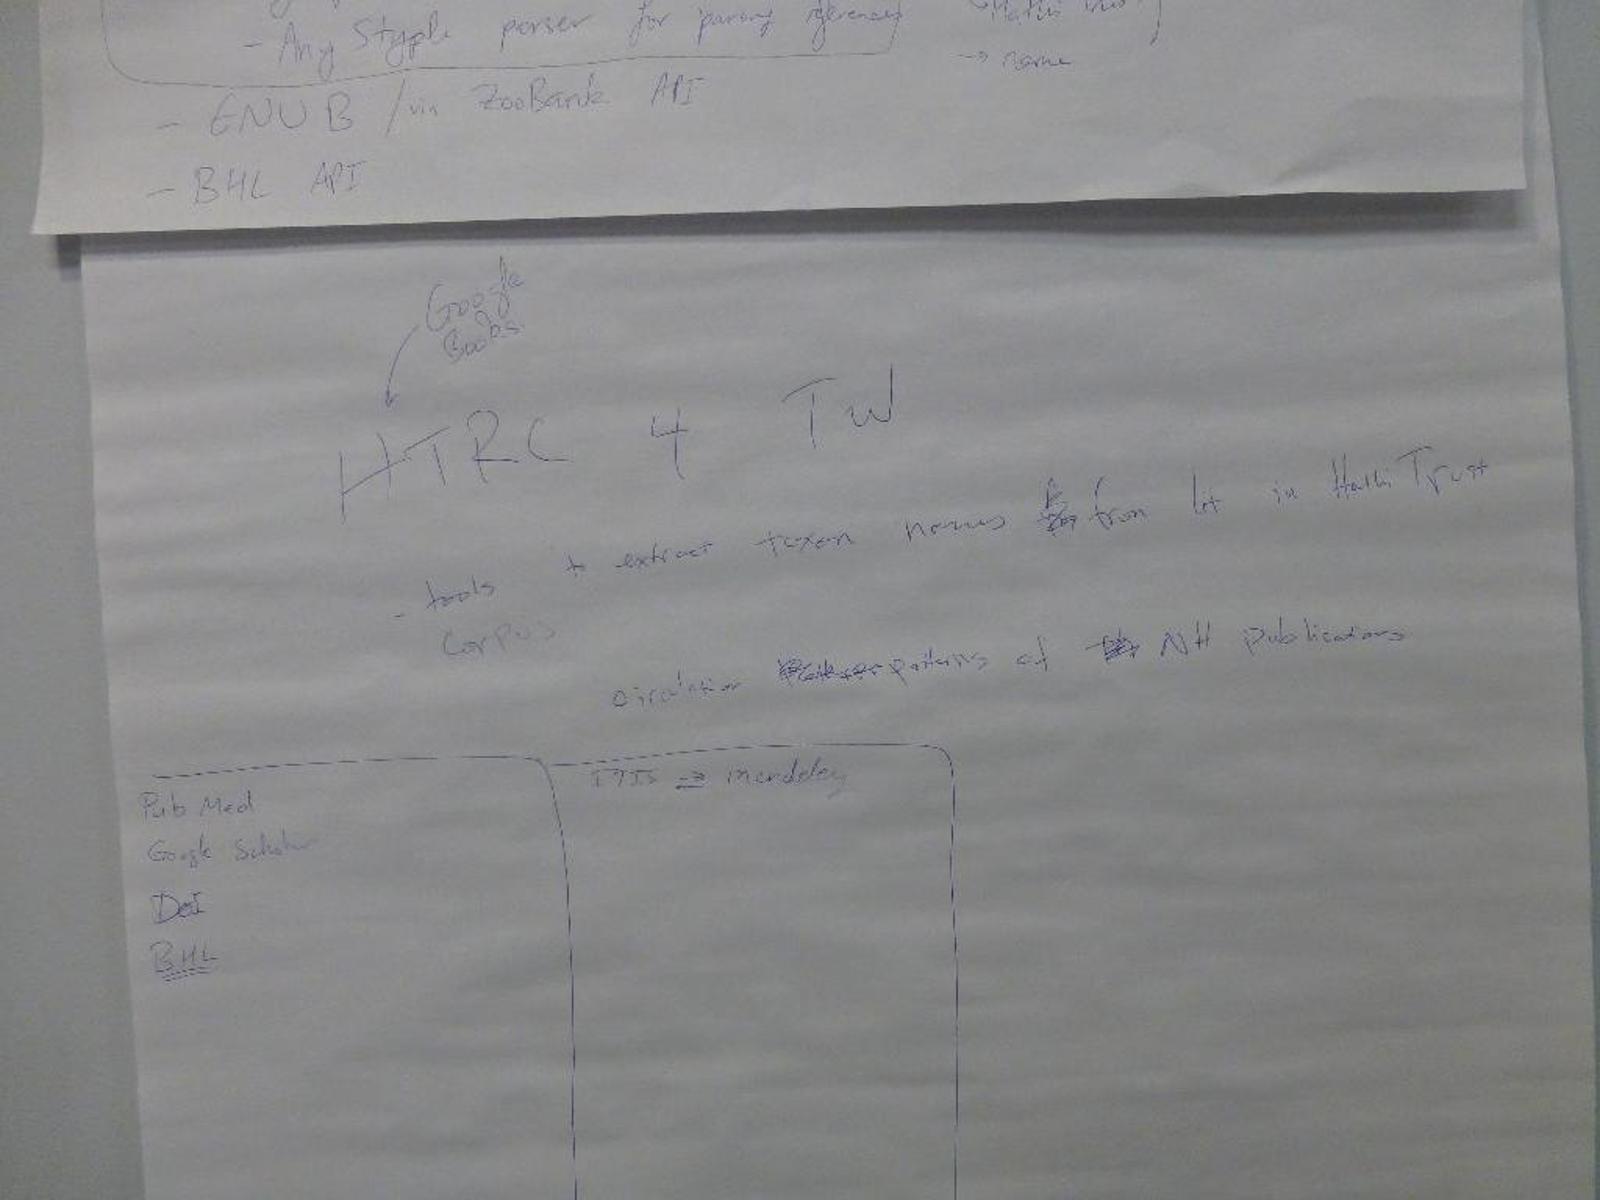 - Any Style parser for parsing references
Hathi
→ name
- GNUB / via ZooBank API
- BHL API
Google
Books
HTRC 4 TW
- tools to extract taxon names from lit in Hathi Trust
corpus
circulation patterns of NH publications
Pub Med
Google Scholar
DOI
BHL
ITIS → mendeley